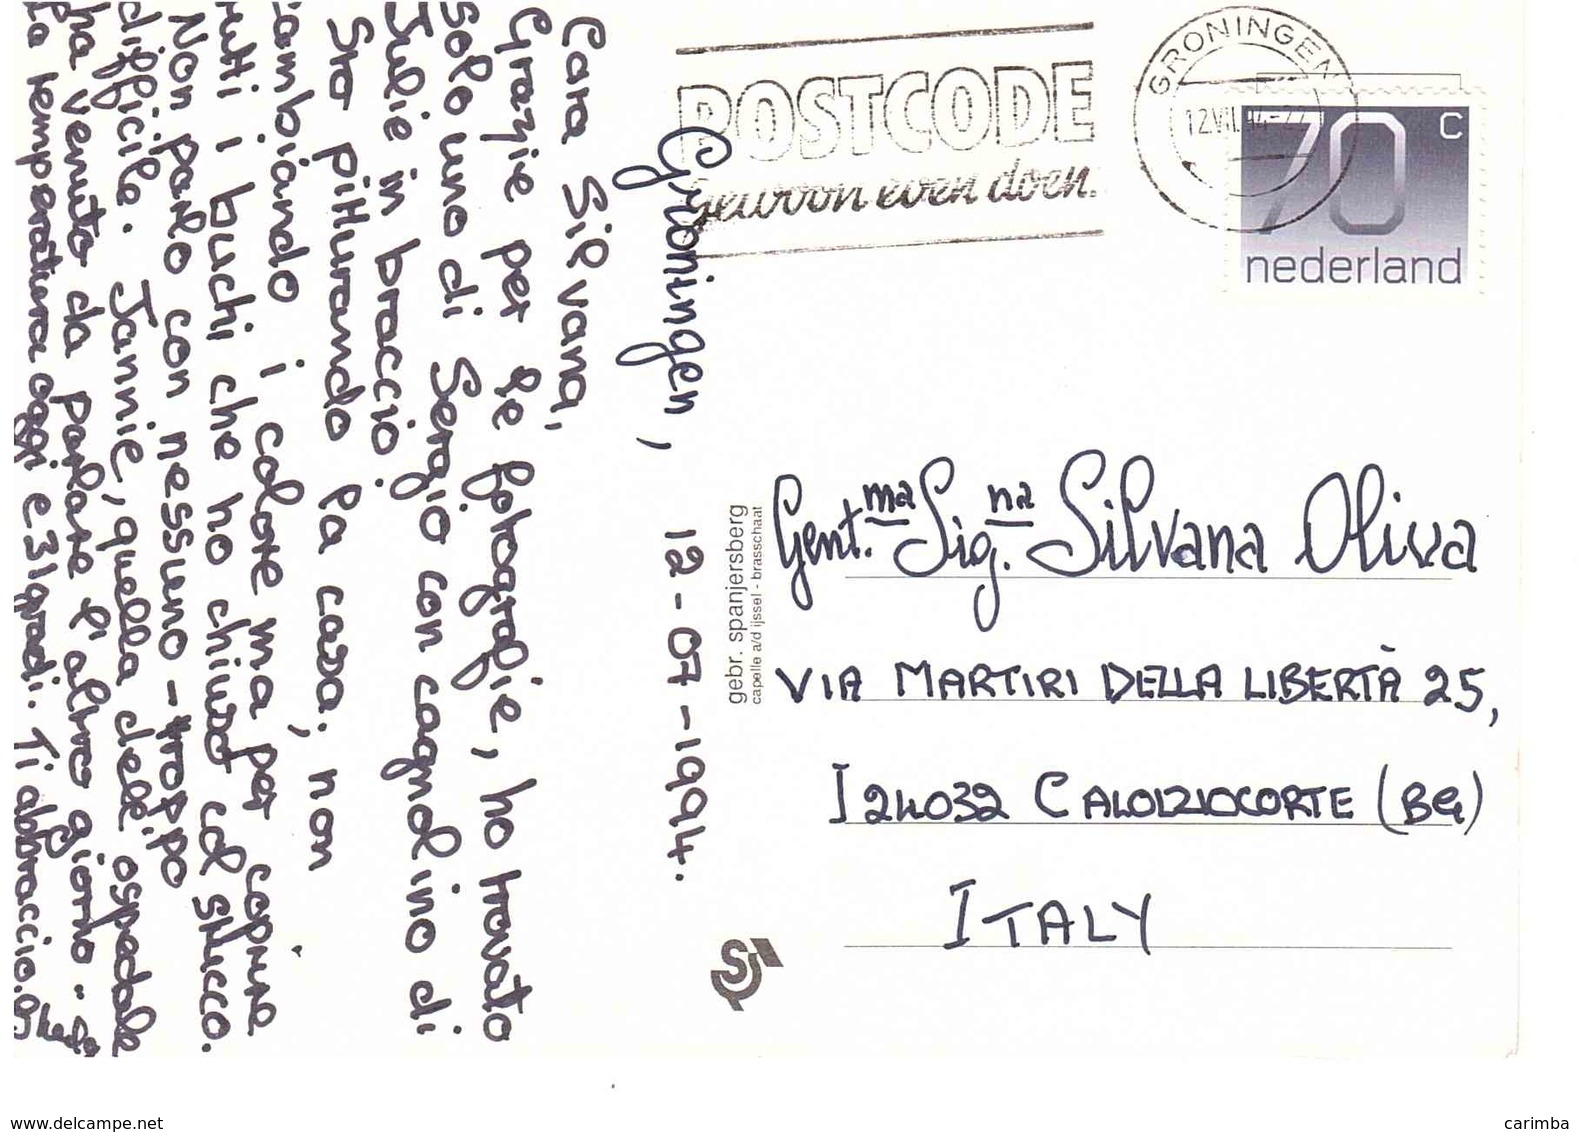 Groningen, 12-07-1994.
Cara Silvana,
Grazie per le fotografie, ho trovato
solo uno di Sergio con cagnolino di
Julie in braccio.
Sto pitturando la casa, non
cambiando i colore ma per coprire
tutti i buchi che ho chiuso col stucco.
Non parlo con nessuno - troppo
difficile. Jannie, quella dell'ospedale
ha venuto da parlare l'altro giorno -
La temperatura oggi è 31 gradi. Ti abbraccio.
POSTCODE
gewoon even doen.
GRONINGEN
12.VII.94-22
70 C
nederland
gebr. spanjersberg
capelle a/d ijssel - brasschaat
Gent.ma Sig.na Silvana Oliva
VIA MARTIRI DELLA LIBERTÀ 25,
I 24032 CALOLZIOCORTE (BG)
ITALY
S
www.delcampe.net
carimba